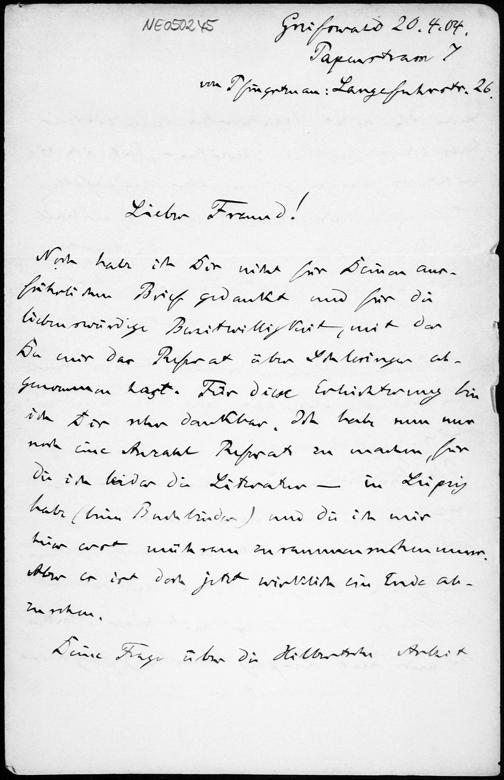 NE050245
Greifswald 20.4.04.
Papenstrasse 7
von Pfingsten an: Langefuhrstr. 26.
Lieber Freund!
Noch habe ich Dir nicht für Deinen aus-
führlichen Brief gedankt und für die
liebenswürdige Bereitwilligkeit, mit der
Du mir das Referat über Schlesinger ab-
genommen hast. Für diese Erleichterung bin
ich Dir sehr dankbar. Ich habe nun nur
noch eine Anzahl Referate zu machen, für
die ich leider die Literatur — in Leipzig
habe (beim Buchbinder) und die ich mir
hier erst mühsam zusammensuchen muss.
Aber es ist doch jetzt wirklich ein Ende ab-
zusehen.
Deine Frage über die Hilbertsche Arbeit